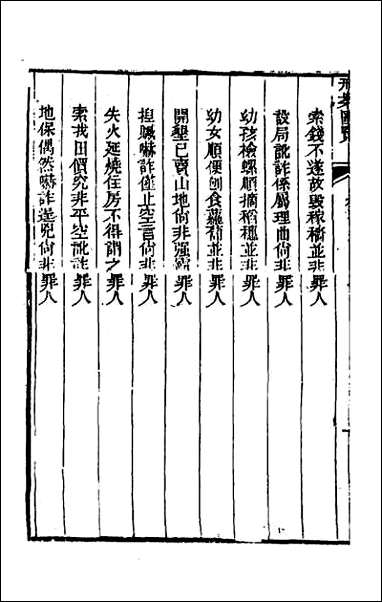 刑案匯覽
索錢不遂故毀稼穡並非罪人
設局訛詐係屬理曲尚非罪人
幼孩檢螺順摘稻穗並非罪人
幼女順便刨食蘿蔔並非罪人
開墾已賣山地尚非強霸罪人
捏贓嚇詐僅止空言尚非罪人
失火延燒住房不得謂之罪人
索找田價究非平空訛詐罪人
地保偶然嚇詐逞兇尚非罪人